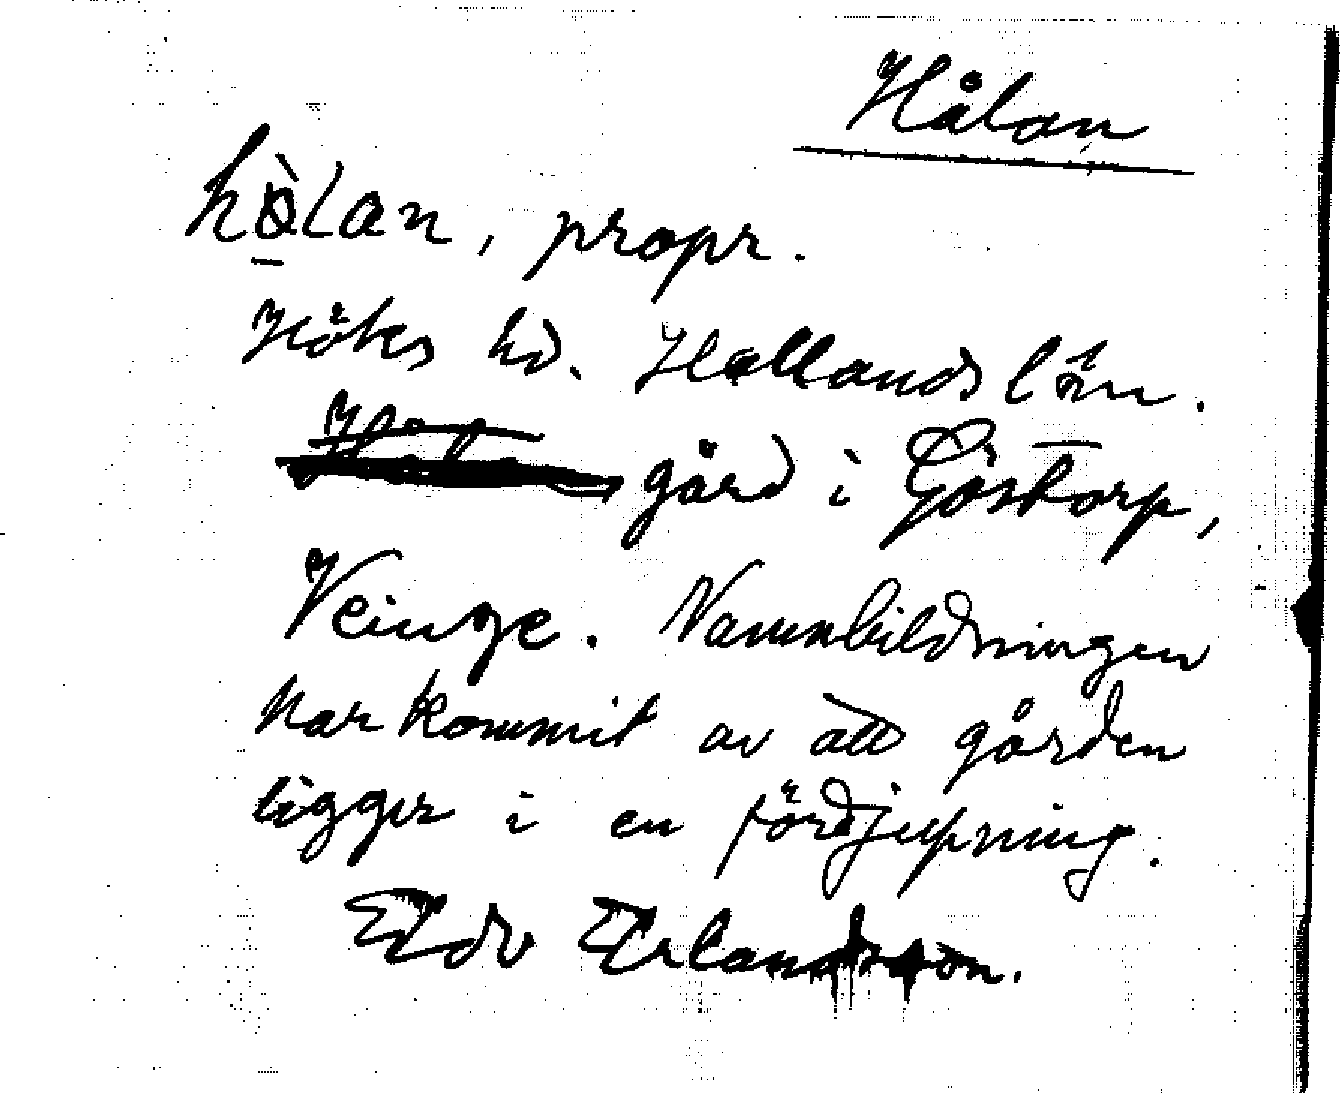 Hålan
hòlan, propr.
Höks hd. Hallands län.
gård i Göstorp,
Veinge. Namnbildningen
har kommit av att gården
ligger i en fördjupning.
Edv Erlandsson.